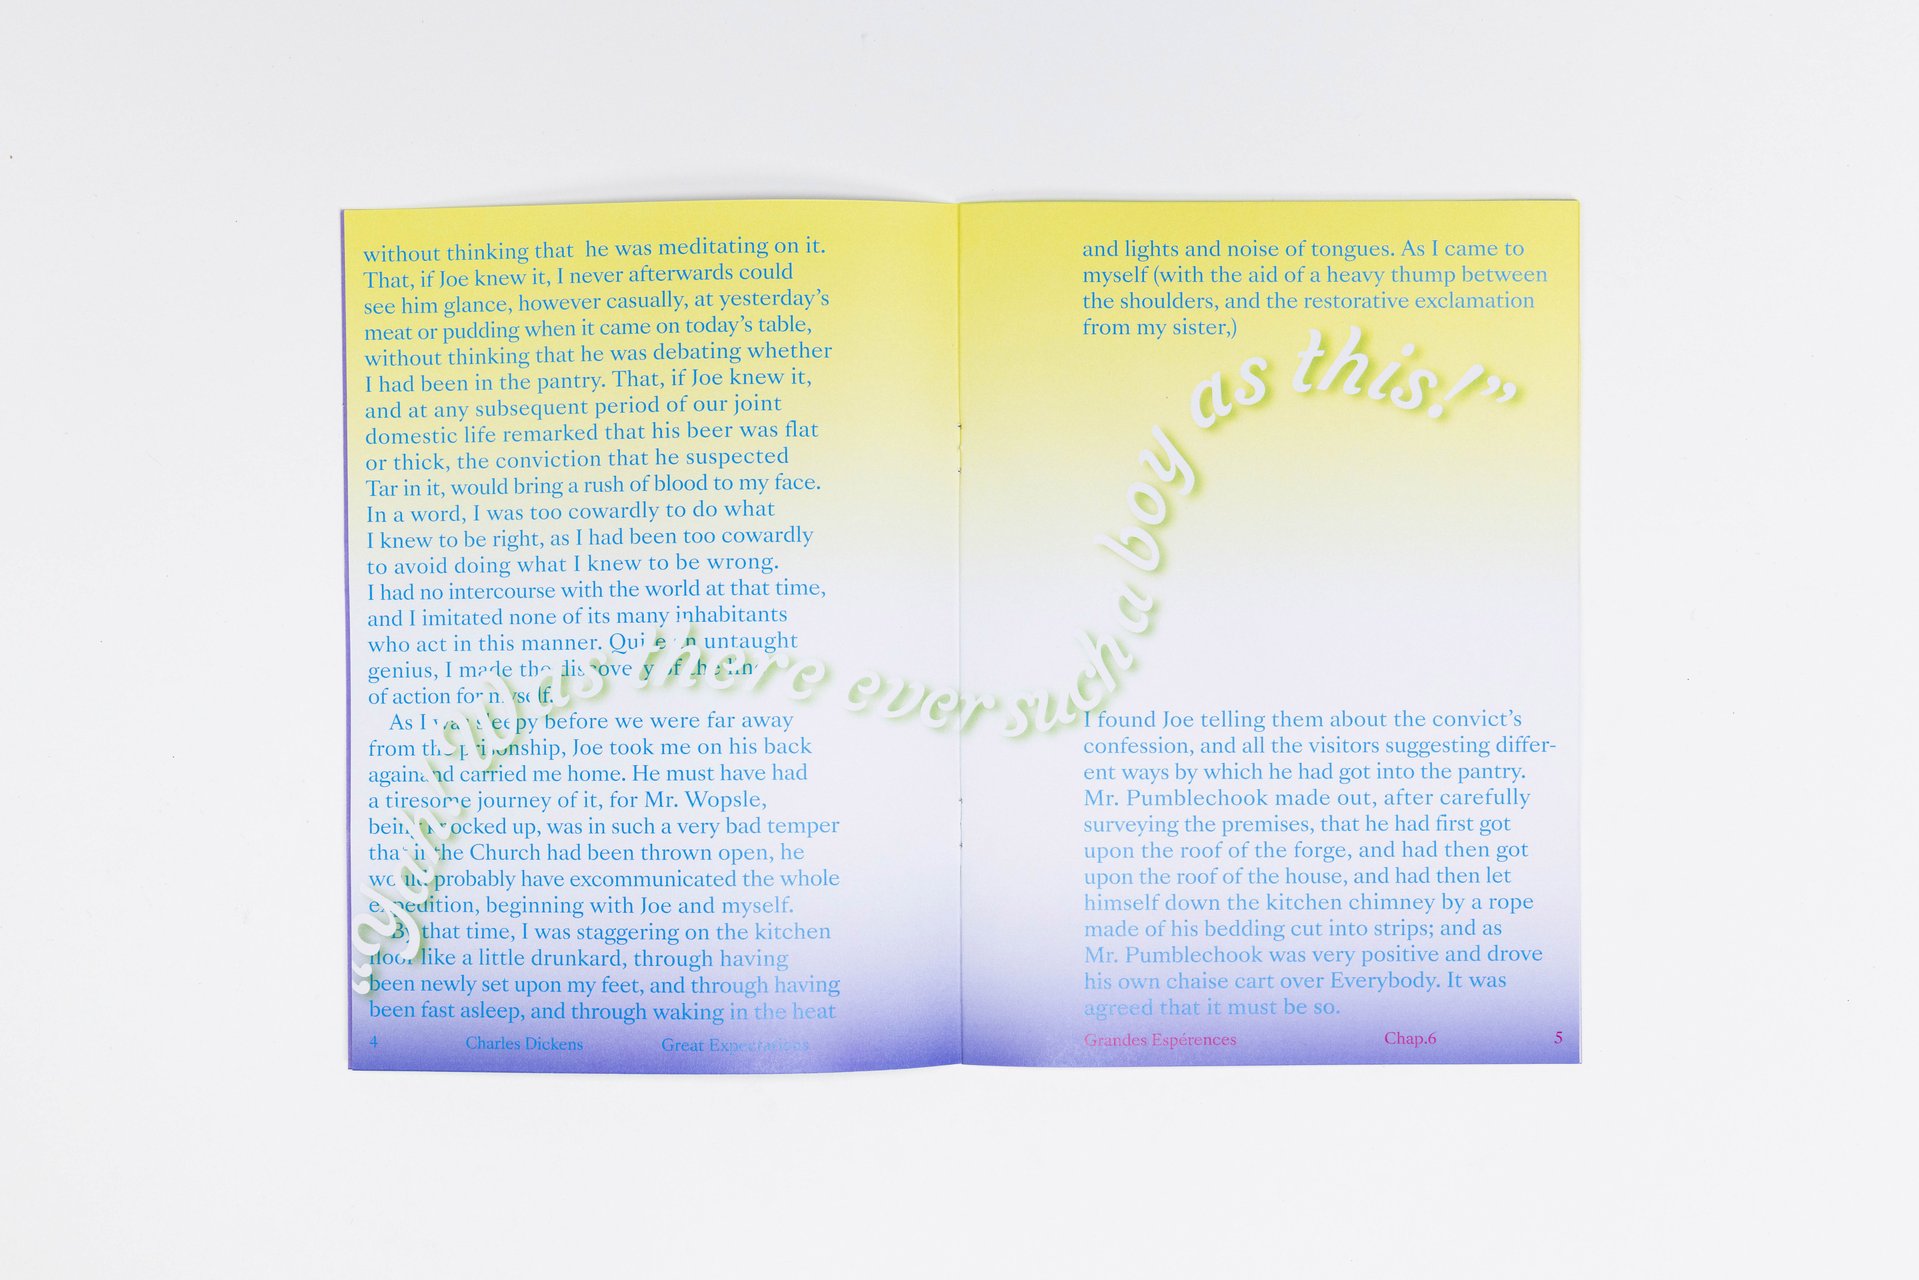 without thinking that he was meditating on it.
That, if Joe knew it, I never afterwards could
see him glance, however casually, at yesterday's
meat or pudding when it came on today's table,
without thinking that he was debating whether
I had been in the pantry. That, if Joe knew it,
and at any subsequent period of our joint
domestic life remarked that his beer was flat
or thick, the conviction that he suspected
Tar in it, would bring a rush of blood to my face.
In a word, I was too cowardly to do what
I knew to be right, as I had been too cowardly
to avoid doing what I knew to be wrong.
I had no intercourse with the world at that time,
and I imitated none of its many inhabitants
who act in this manner. Quite an untaught
genius, I made the discovery of the line
of action for myself.
As I was sleepy before we were far away
from the prisonship, Joe took me on his back
again and carried me home. He must have had
a tiresome journey of it, for Mr. Wopsle,
being knocked up, was in such a very bad temper
that if the Church had been thrown open, he
would probably have excommunicated the whole
expedition, beginning with Joe and myself.
By that time, I was staggering on the kitchen
floor like a little drunkard, through having
been newly set upon my feet, and through having
been fast asleep, and through waking in the heat
4 Charles Dickens Great Expectations
and lights and noise of tongues. As I came to
myself (with the aid of a heavy thump between
the shoulders, and the restorative exclamation
from my sister,)
“Yah! Was there ever such a boy as this!”
I found Joe telling them about the convict's
confession, and all the visitors suggesting differ-
ent ways by which he had got into the pantry.
Mr. Pumblechook made out, after carefully
surveying the premises, that he had first got
upon the roof of the forge, and had then got
upon the roof of the house, and had then let
himself down the kitchen chimney by a rope
made of his bedding cut into strips; and as
Mr. Pumblechook was very positive and drove
his own chaise cart over Everybody. It was
agreed that it must be so.
Grandes Espérences Chap.6 5